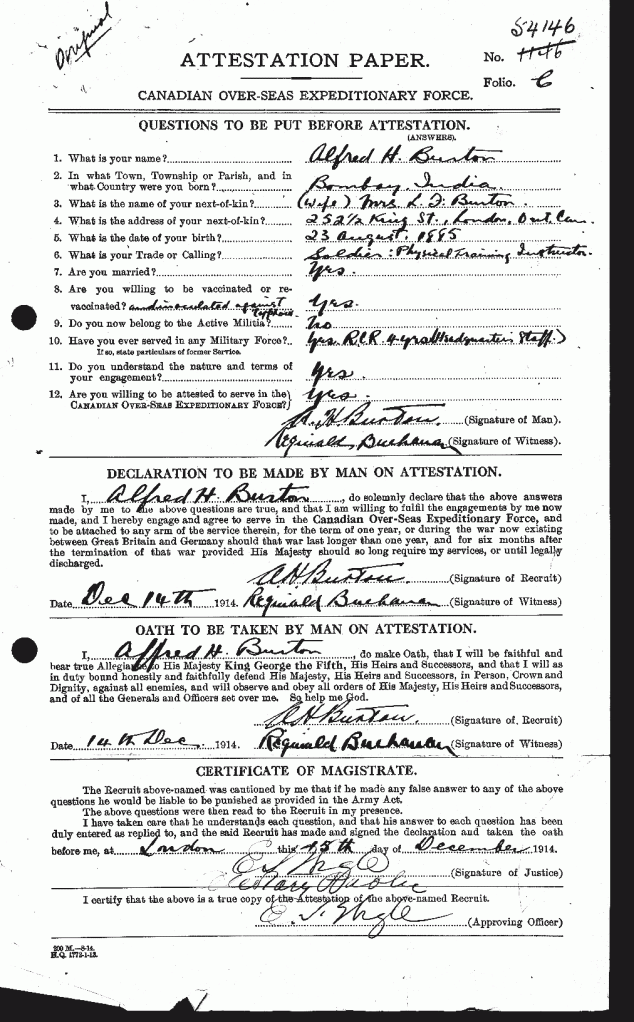 Original
54146
ATTESTATION PAPER.
No. 1146
Folio. C
CANADIAN OVER-SEAS EXPEDITIONARY FORCE.
QUESTIONS TO BE PUT BEFORE ATTESTATION.
(ANSWERS).
1. What is your name? Alfred H. Burton
2. In what Town, Township or Parish, and in
what Country were you born? Bombay India
3. What is the name of your next-of-kin? (Wife) Mrs L. F. Burton.
4. What is the address of your next-of-kin? 252½ King St., London, Ont Can.
5. What is the date of your birth? 23 August, 1885
6. What is your Trade or Calling? Soldier: Physical Training Instructor.
7. Are you married? Yes.
8. Are you willing to be vaccinated or re-
vaccinated? and inoculated against Typhoid Yes.
9. Do you now belong to the Active Militia? No
10. Have you ever served in any Military Force? Yes. RCR 4 yrs (Headquarters Staff.)
If so, state particulars of former Service.
11. Do you understand the nature and terms of
your engagement? Yes.
12. Are you willing to be attested to serve in the
CANADIAN OVER-SEAS EXPEDITIONARY FORCE? Yes.
A. H Burton. (Signature of Man).
Reginald Buchanan (Signature of Witness).
DECLARATION TO BE MADE BY MAN ON ATTESTATION.
I, Alfred H. Burton, do solemnly declare that the above answers
made by me to the above questions are true, and that I am willing to fulfil the engagements by me now
made, and I hereby engage and agree to serve in the Canadian Over-Seas Expeditionary Force, and
to be attached to any arm of the service therein, for the term of one year, or during the war now existing
between Great Britain and Germany should that war last longer than one year, and for six months after
the termination of that war provided His Majesty should so long require my services, or until legally
discharged.
A H Burton (Signature of Recruit)
Date Dec 14th 1914. Reginald Buchanan (Signature of Witness)
OATH TO BE TAKEN BY MAN ON ATTESTATION.
I, Alfred H. Burton, do make Oath, that I will be faithful and
bear true Allegiance to His Majesty King George the Fifth, His Heirs and Successors, and that I will as
in duty bound honestly and faithfully defend His Majesty, His Heirs and Successors, in Person, Crown and
Dignity, against all enemies, and will observe and obey all orders of His Majesty, His Heirs and Successors,
and of all the Generals and Officers set over me. So help me God.
A H Burton (Signature of Recruit)
Date 14th Dec. 1914. Reginald Buchanan (Signature of Witness)
CERTIFICATE OF MAGISTRATE.
The Recruit above-named was cautioned by me that if he made any false answer to any of the above
questions he would be liable to be punished as provided in the Army Act.
The above questions were then read to the Recruit in my presence.
I have taken care that he understands each question, and that his answer to each question has been
duly entered as replied to, and the said Recruit has made and signed the declaration and taken the oath
before me, at London this 15th day of December 1914.
(Signature of Justice)
Notary Public
I certify that the above is a true copy of the Attestation of the above-named Recruit.
(Approving Officer)
200 M.—8-14.
H.Q. 1772-1-13.